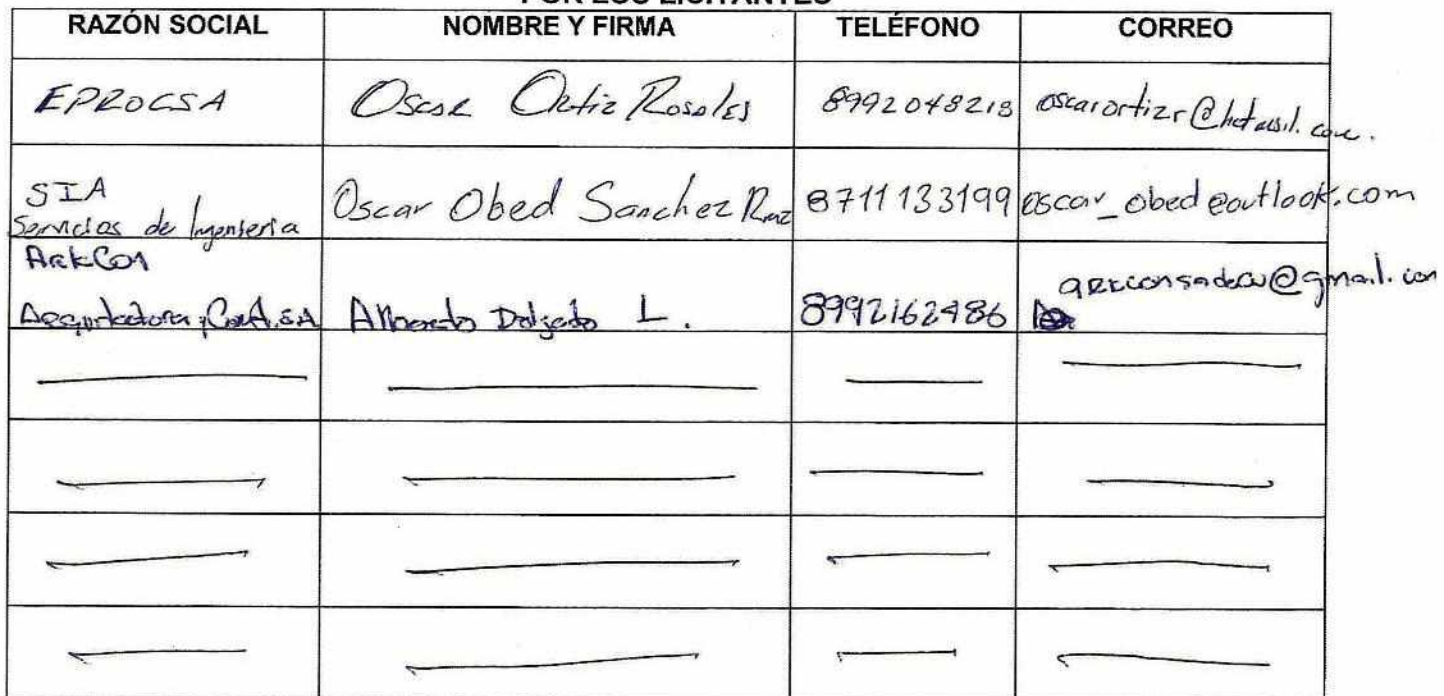 POR LOS LICITANTES
RAZÓN SOCIAL NOMBRE Y FIRMA TELÉFONO CORREO
EPROCSA Oscar Ortiz Rosales 8992048218 oscarortizr@hotmail.com.
SIA
Servicios de Ingenieria Oscar Obed Sanchez 8711133199 oscar_obed@outlook.com
ArkCon
Alberto Delgado L. 8992162486 arkconsadecv@gmail.com